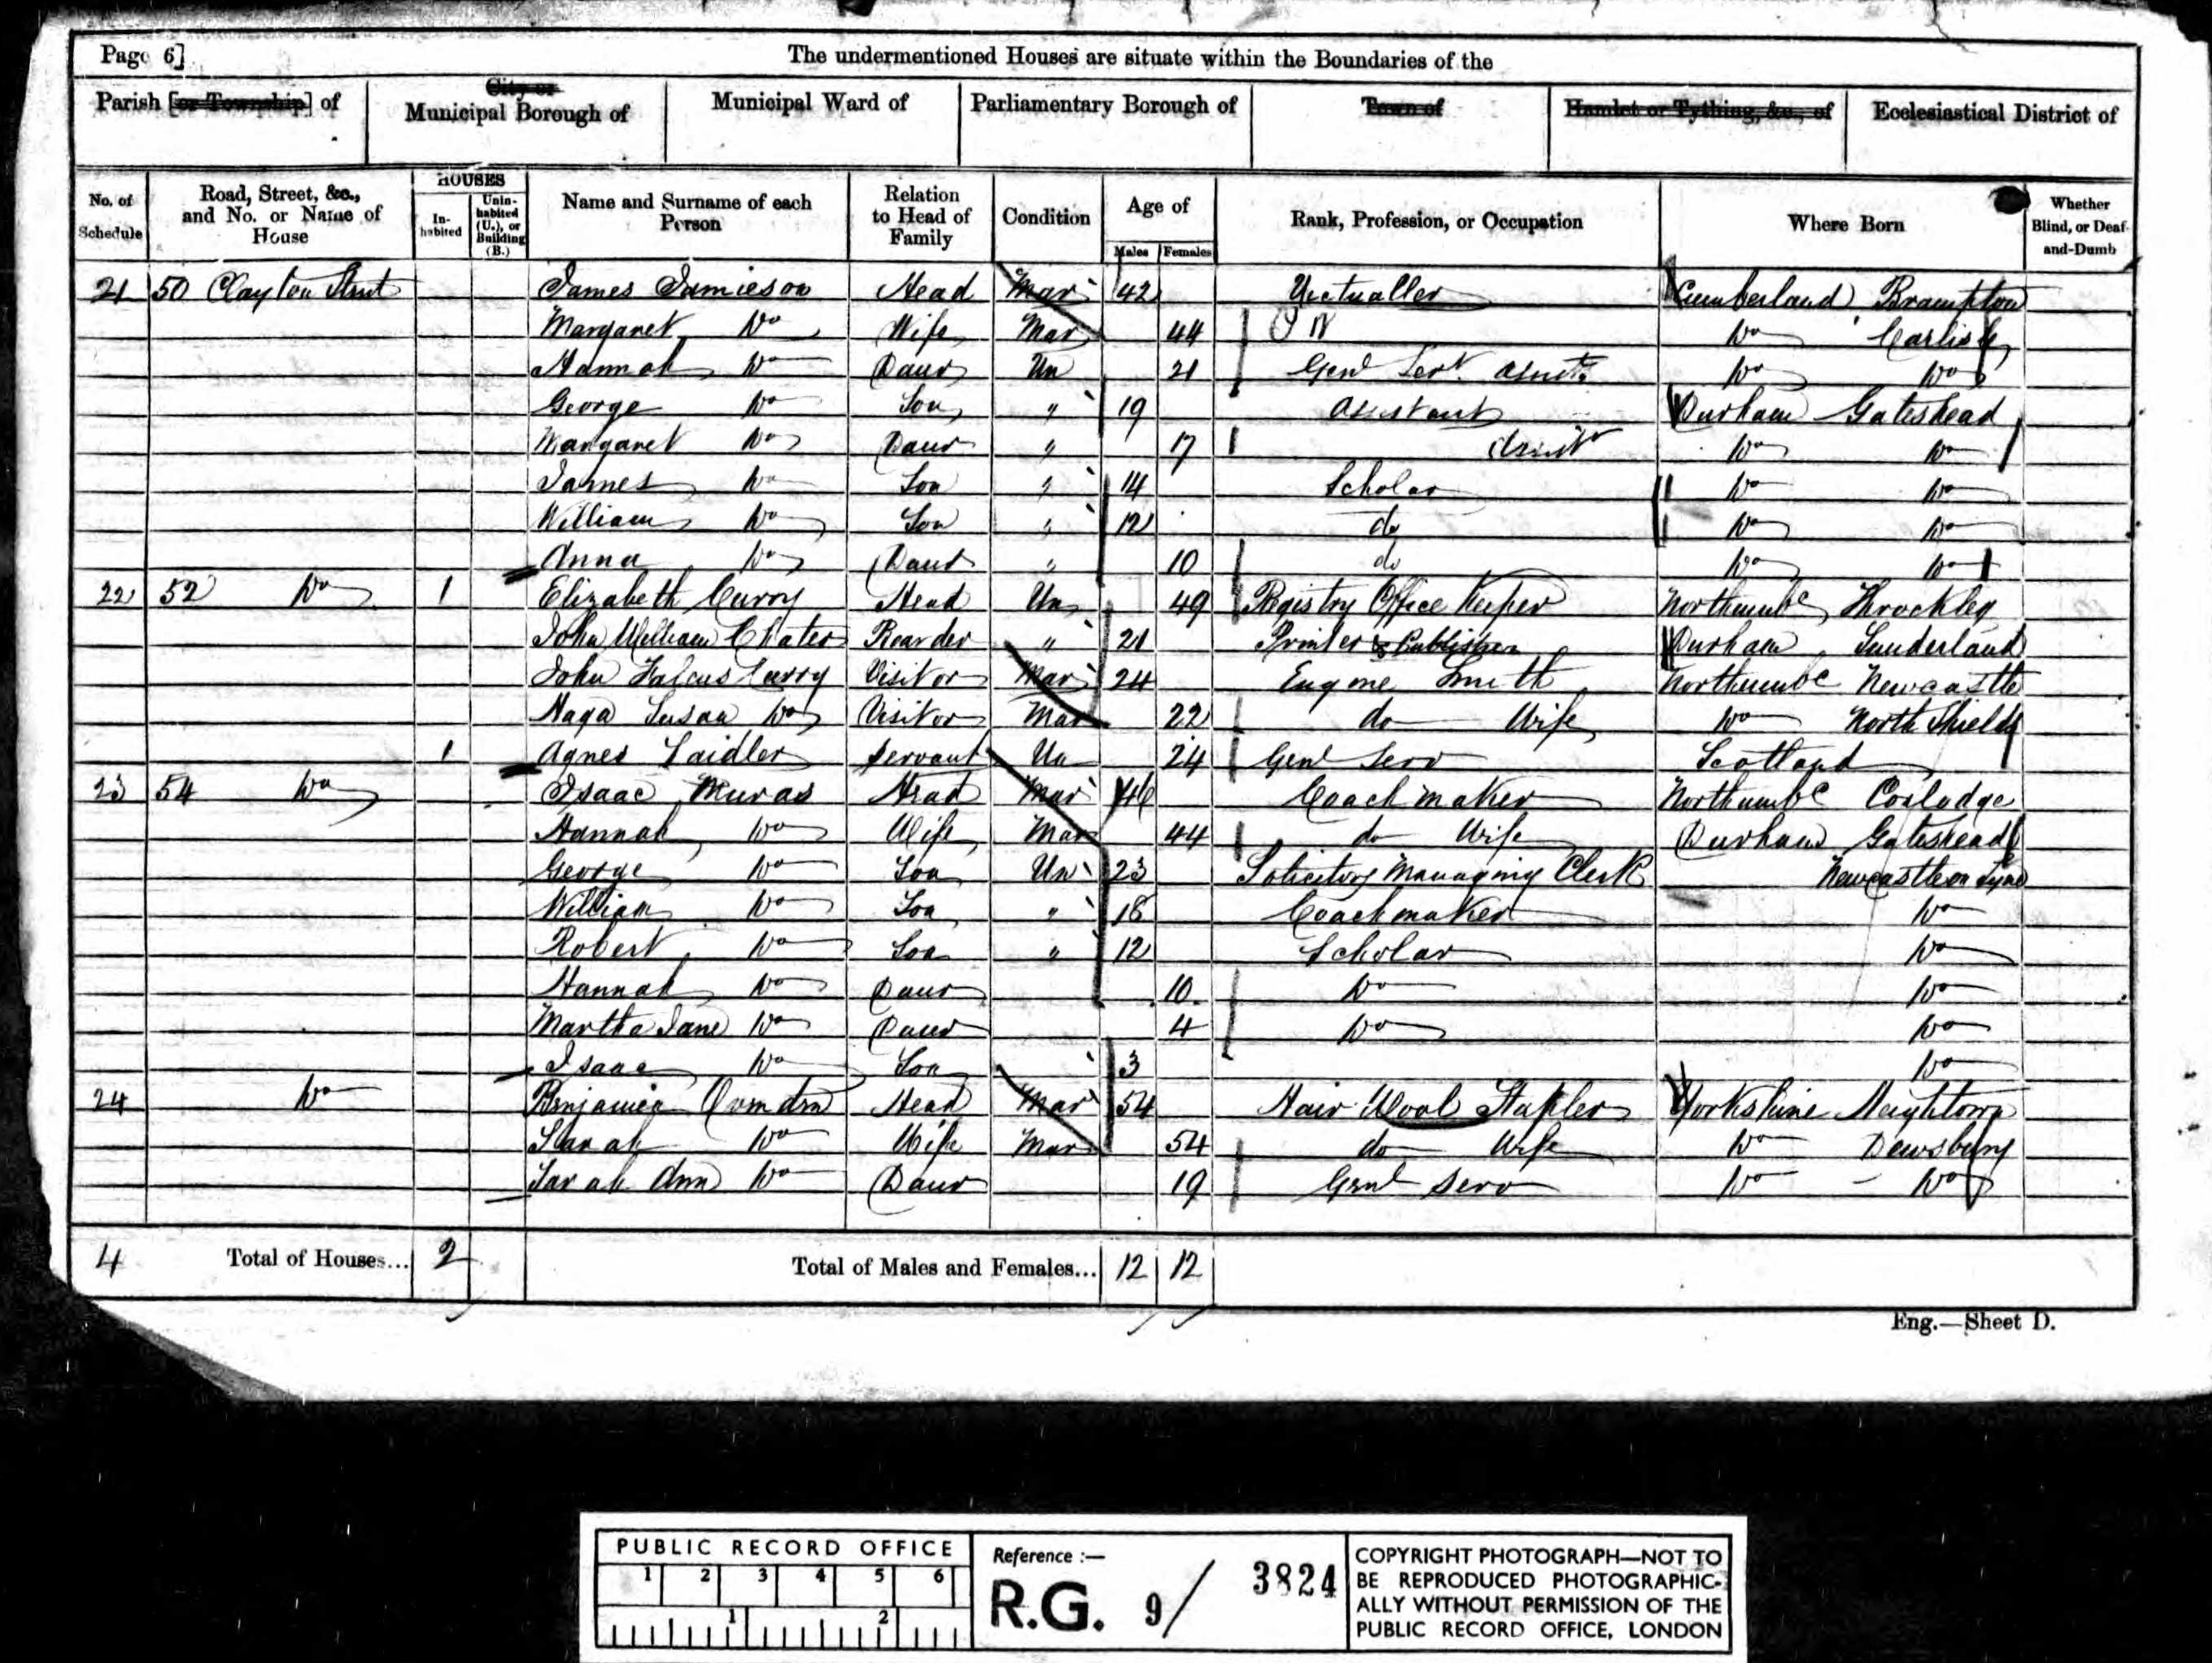 Page 6]
The undermentioned Houses are situate within the Boundaries of the
Parish [or Township] of
City or Municipal Borough of
Municipal Ward of
Parliamentary Borough of
Town of
Hamlet or Tything, &c., of
Ecclesiastical District of
No. of Schedule
Road, Street, &c., and No. or Name of House
HOUSES
In-habited
Unin-habited (U.), or Building (B.)
Name and Surname of each Person
Relation to Head of Family
Condition
Age of
Males
Females
Rank, Profession, or Occupation
Where Born
Whether Blind, or Deaf-and-Dumb
21 50 Clayton Street James Jamieson Head Mar 42 Victualler Cumberland Brampton
Margaret Do Wife Mar 44 Do Carlisle
Hannah Do Daur Un 21 Genl Serv. Do Do
George Do Son " 19 Assistant Durham Gateshead
Margaret Do Daur " 17 Do Do
James Do Son " 14 Scholar Do Do
William Do Son " 12 do Do Do
Anna Do Daur " 10 do Do Do
22 52 Do 1 Elizabeth Curry Head Un 49 Registry Office Keeper Northumbd Throckley
John William Chater Boarder " 21 Printer & Publisher Durham Sunderland
John Falcus Curry Visitor Mar 24 Engine Smith Northumbd Newcastle
Susan Do Visitor Mar 22 do Wife Do North Shields
1 Agnes Laidler Servant Un 24 Genl Serv Scotland
23 54 Do Isaac Muras Head Mar 46 Coachmaker Northumbd Coxlodge
Hannah Do Wife Mar 44 do Wife Durham Gateshead
George Do Son Un 23 Solicitors Managing Clerk Newcastle on Tyne
William Do Son " 18 Coachmaker Do
Robert Do Son " 12 Scholar Do
Hannah Do Daur 10 Do Do
Martha Jane Do Daur 4 Do Do
Isaac Do Son 3 Do
24 Do Benjamin Head Mar 54 Hair Wool Stapler Yorkshire
Sarah Do Wife Mar 54 do Wife Do Dewsbury
Sarah Ann Do Daur 19 Genl Serv Do Do
4 Total of Houses... 2 Total of Males and Females... 12 12
Eng.—Sheet D.
PUBLIC RECORD OFFICE
1 2 3 4 5 6
1 2
Reference :—
R.G. 9/ 3824
COPYRIGHT PHOTOGRAPH—NOT TO
BE REPRODUCED PHOTOGRAPHIC-
ALLY WITHOUT PERMISSION OF THE
PUBLIC RECORD OFFICE, LONDON